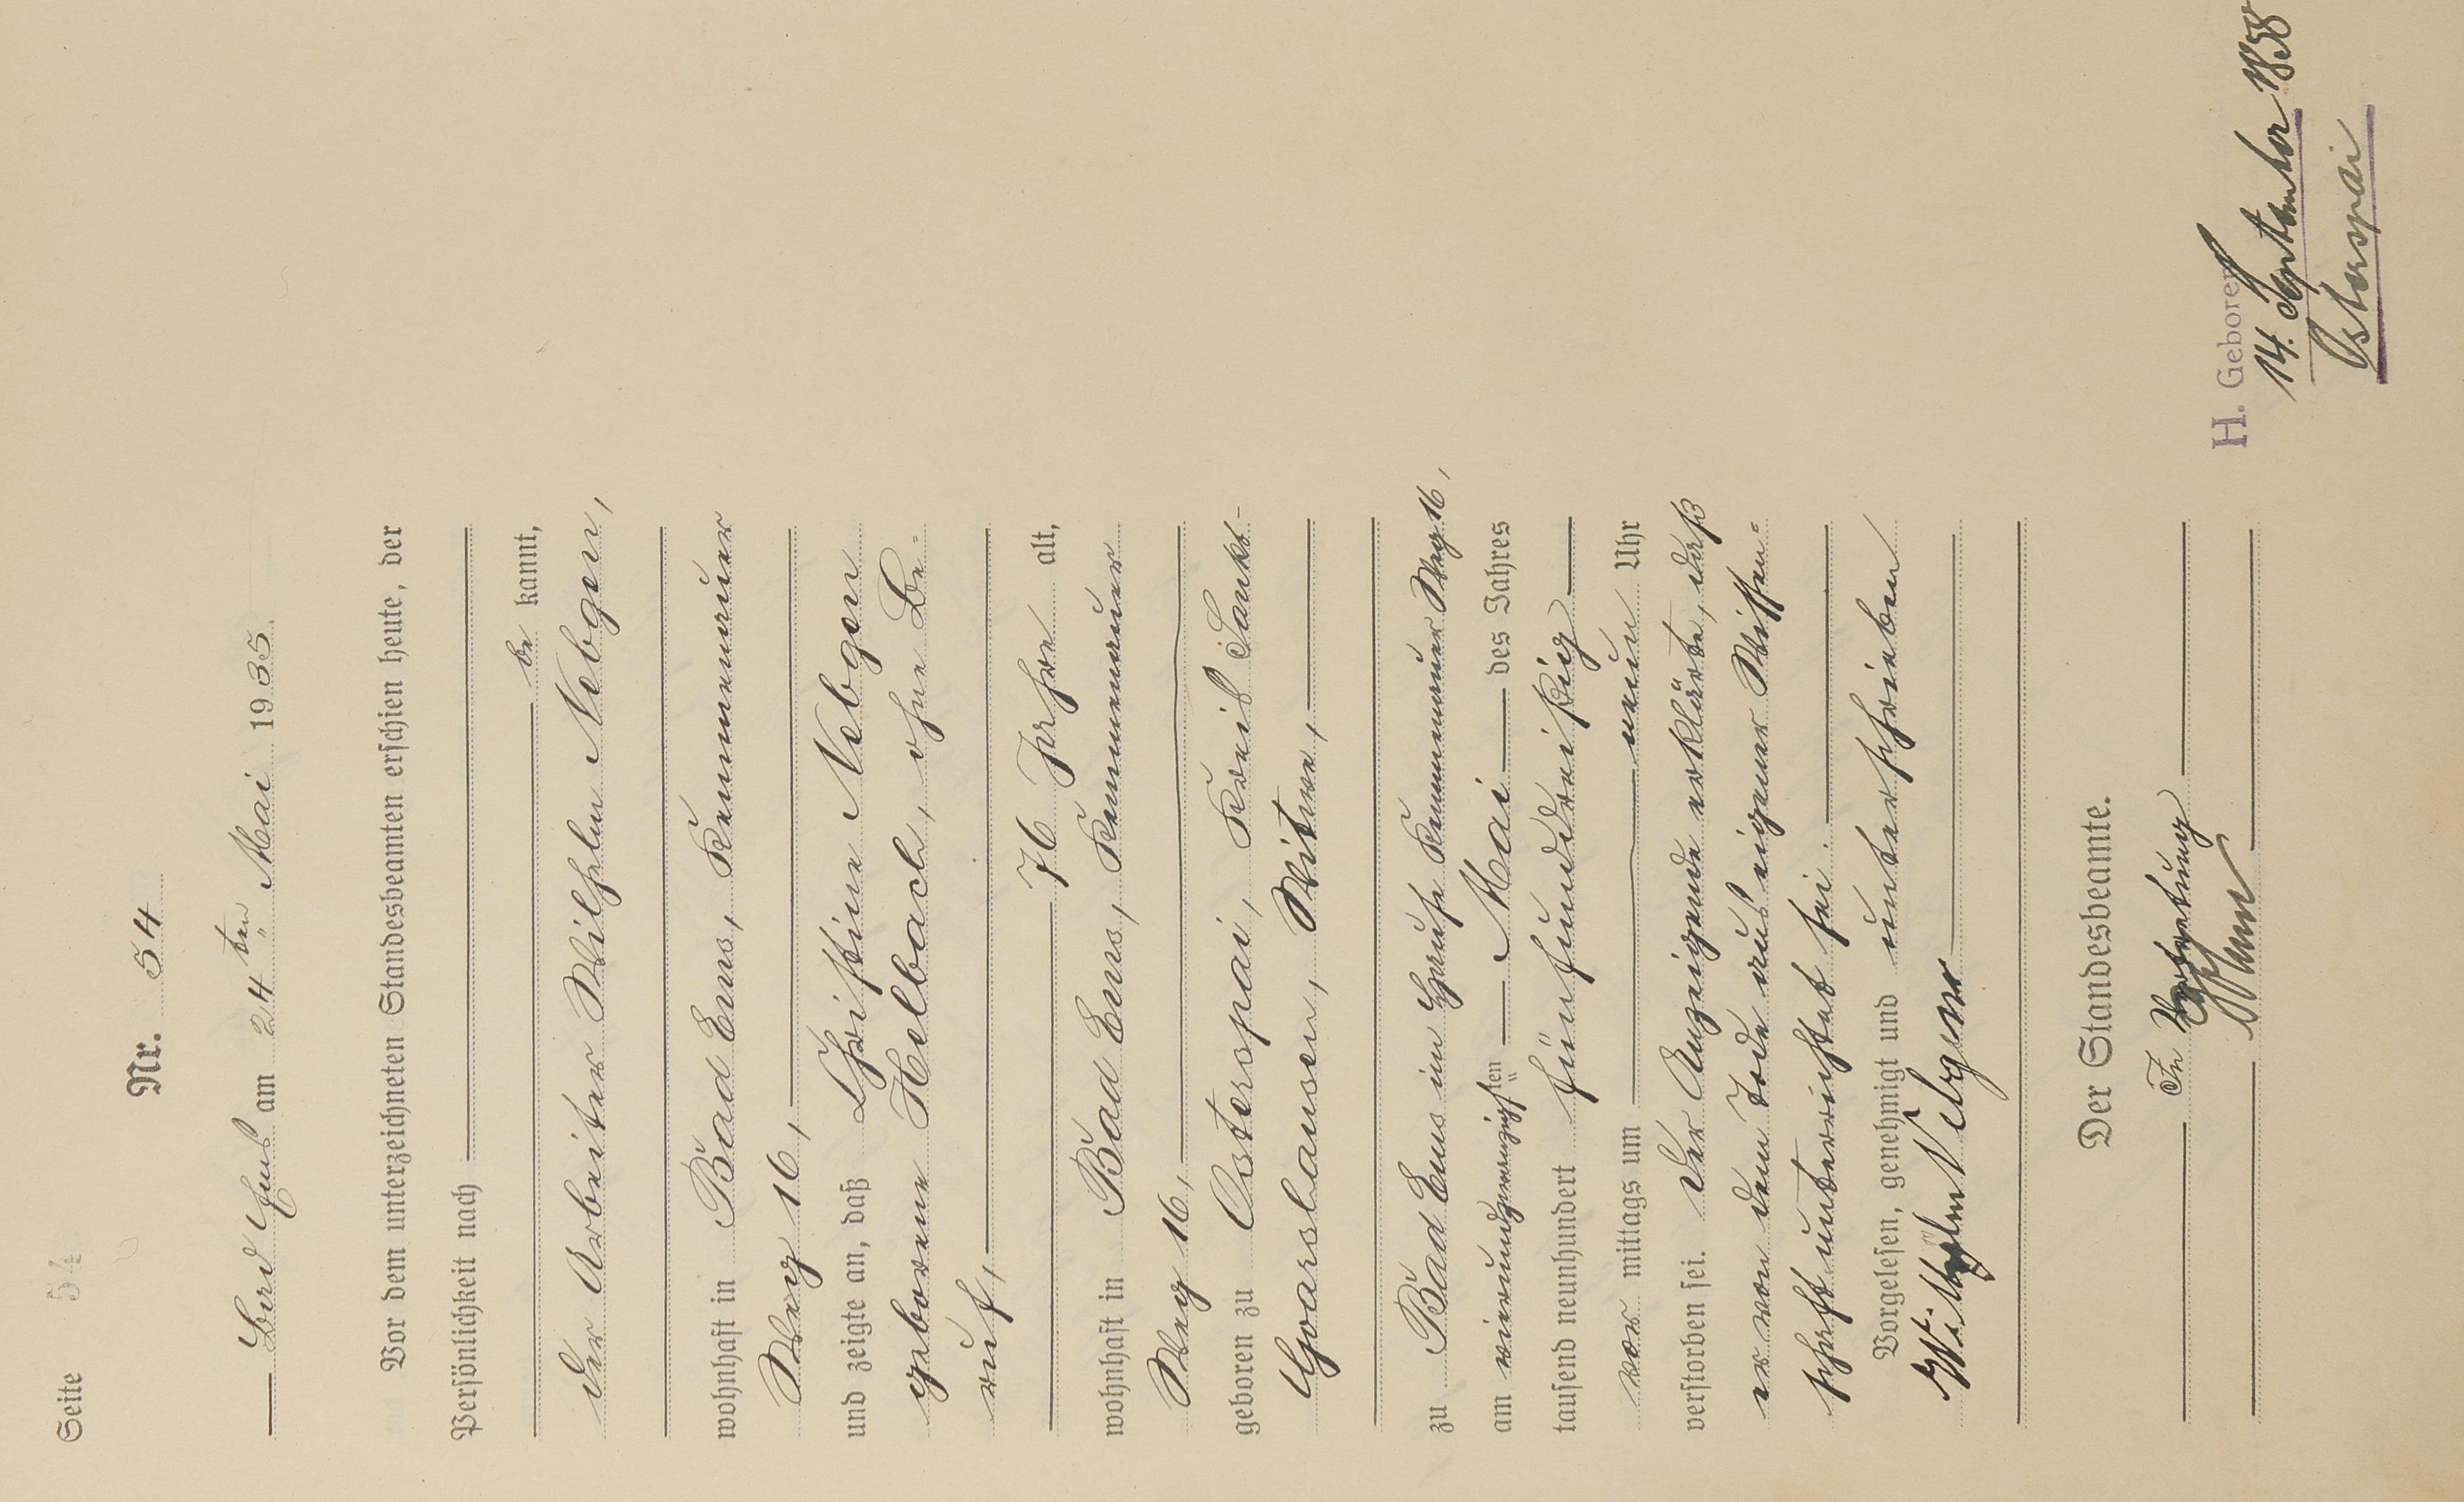 Seite 54
Nr. 54
Bad Ems am 24ten Mai 1935.
Vor dem unterzeichneten Standesbeamten erschien heute, der
Persönlichkeit nach
be kannt,
der Arbeiter Wilhelm Nebgen,
wohnhaft in Bad Ems, Kemmenauer
Weg 16,
und zeigte an, daß Christine Nebgen
geborene Helbach, ohne Be-
ruf,
76 Jahre alt,
wohnhaft in Bad Ems, Kemmenauer
Weg 16,
geboren zu Osterspai, Kreis Sankt-
Goarshausen, Witwe,
zu Bad Ems im Hause Kemmenauer Weg 16,
am vierundzwanzigsten Mai des Jahres
tausend neunhundert fünfunddreißig
vor mittags um neun Uhr
verstorben sei. Der Anzeigende erklärte, daß
er von dem Tode aus eigener Wissen-
schaft unterrichtet sei.
Vorgelesen, genehmigt und unterschrieben
Wilhelm Nebgen
Der Standesbeamte.
In Vertretung
H. Geboren
14. September 1858
Osterspai